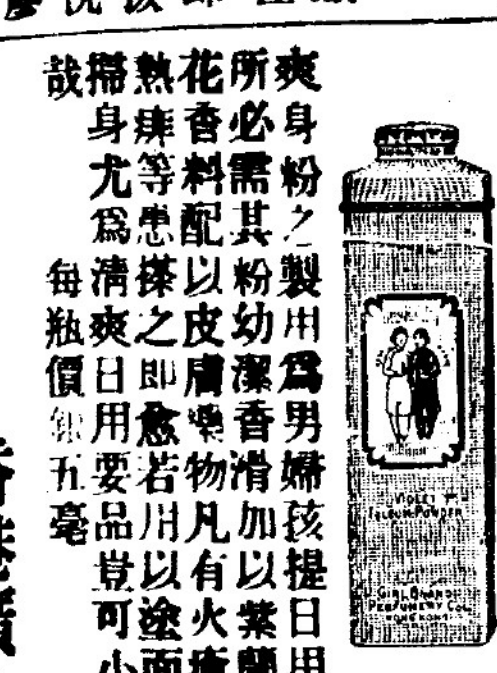 爽身粉之製用爲男婦孩提日用
所必需其粉幼潔香滑加以紫蘭
花香料配以皮膚藥物凡有火
熱痱等患搽之即愈若用以塗面
掃身尤爲清爽日用要品豈可小
哉　每瓶價銀五毫
VIOLET
TALCUM POWDER
GIRL BRAND
PERFUMERY CO.
HONG KONG